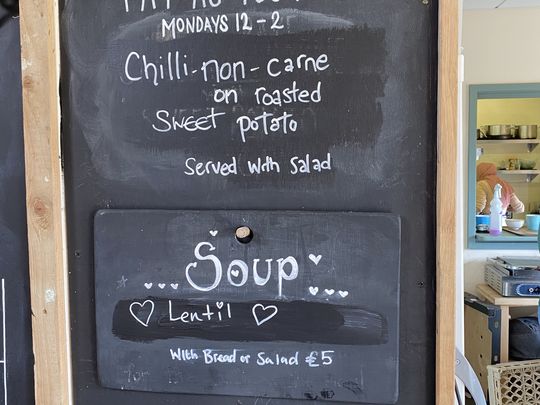 MONDAYS 12-2
Chilli-non-carne
on roasted
Sweet potato
Served with Salad
Soup
Lentil
With Bread or Salad £5